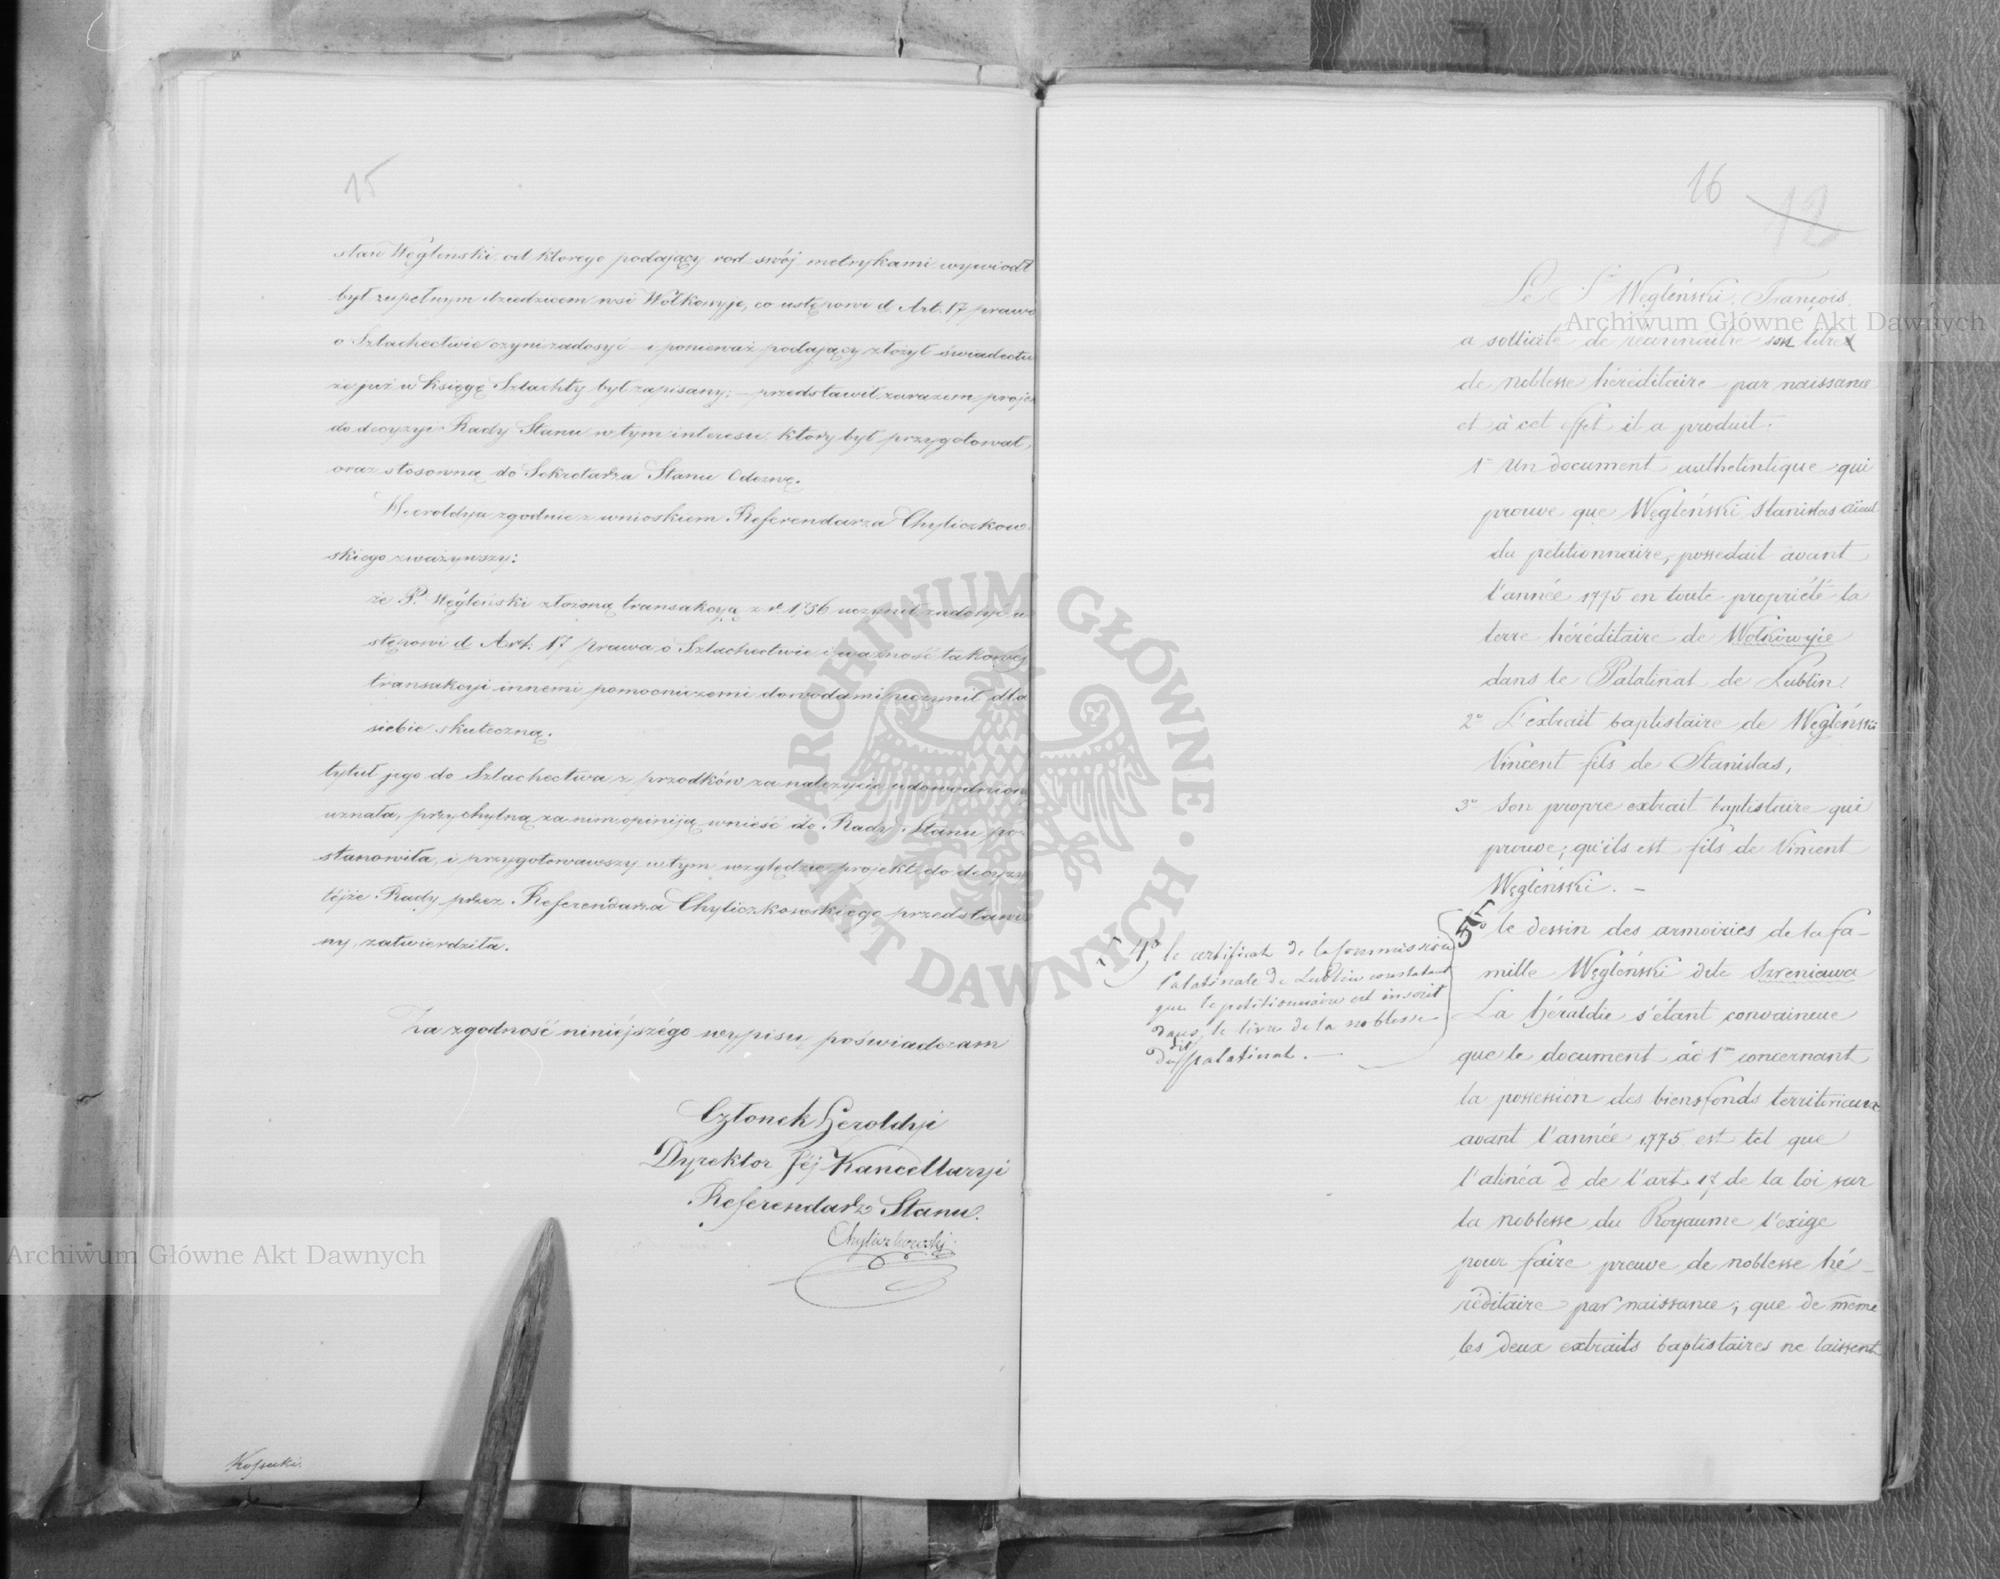 15
sław Węgleński, od którego podający ród swój metrykami wywiódł
był zupełnym dziedzicem wsi Wołkowyje, co ustępowi d Art. 17 prawa
o Szlachectwie czyni zadosyć i ponieważ podający złożył świadectwo
że już w księgę Szlachty był zapisany; – przedstawił zarazem projekt
do decyzyi Rady Stanu w tym interesu, który był przygotował,
oraz stosowną do Sekretarza Stanu Odezwę.
Heroldya zgodnie z wnioskiem Referendarza Chyliczkow-
skiego zważywszy:
że P. Węgleński złożoną transakcyą z r. 1756 uczynił zadosyć u-
stępowi d Art. 17 prawa o Szlachectwie i ważność takowej
transakcyi innemi pomocniczemi dowodami uczynił dla
siebie skuteczną.
tytuł jego do Szlachectwa z przodków za należycie udowodniony
uznała, przychylną za nim opiniją wnieść do Rady Stanu po-
stanowiła, i przygotowawszy w tym względzie projekt do decyzyi
tejże Rady przez Referendarza Chyliczkowskiego przedstawio-
ny, zatwierdziła.
Za zgodność niniejszégo wypisu poświadczam
Członek Heroldyi
Dyrektor Jéj Kancellaryi
Referendarz Stanu.
Chyliczkowski
16
12
Le Sr Węgleński François
a sollicité de reconnaitre son titre
de noblesse héréditaire par naissance
et à cet effet il a produit:
1º Un document authetintique qui
prouve que Węgleński Stanislas aïeul
du pétitionnaire, possedait avant
l'année 1775 en toute propriété la
terre héréditaire de Wołkowyie
dans le Palatinat de Lublin.
2º L'extrait baptistaire de Węgleński
Vincent fils de Stanislas,
3º Son propre extrait baptistaire qui
prouve, qu'ils est fils de Vincent
Węgleński. –
4º, le certificat de la Commission
Palatinale de Lublin constatant
que le petitionnaire est inscrit
dans le livre de la noblesse
du dit palatinat. –
5º le dessin des armoiries de la fa-
mille Węgleński dite Szreniawa
La héraldie s'étant convaincue
que le document ad 1m concernant
la possession des biensfonds territoriaux
avant l'année 1775 est tel que
l'alinéa d de l'art. 17 de la loi sur
la noblesse du Royaume l'exige
pour faire preuve de noblesse hé-
réditaire par naissance; que de même
les deux extraits baptistaires ne laissent
Archiwum Główne Akt Dawnych
Archiwum Główne Akt Dawnych
ARCHIWUM GŁÓWNE
AKT DAWNYCH